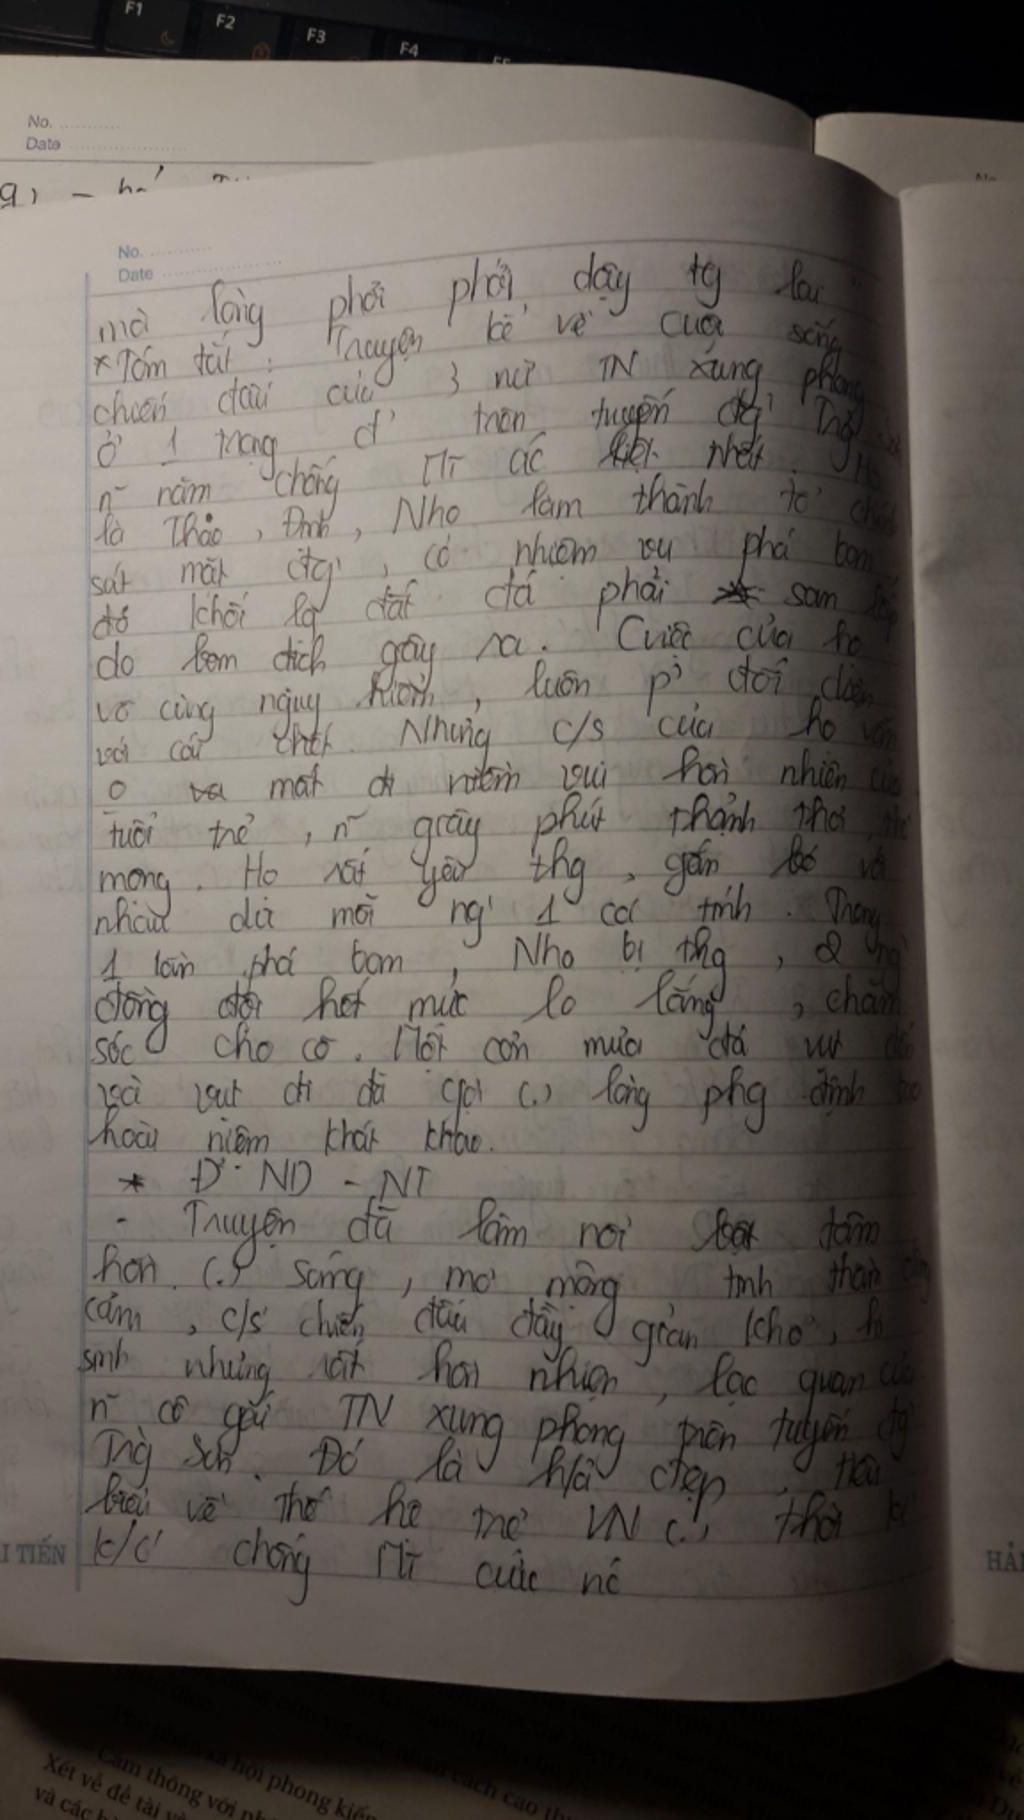 F1
F2
F3
F4
No.
Date
No.
Date
mà lòng phơi phới dậy tg lai"
*Tóm tắt : Truyện kể về cuộc sống
chiến đấu của 3 nữ TN xung phong
ở 1 trọng đ' trên tuyến đg' Trg
n~ năm chống Mĩ ác liệt nhất. Họ
là Thảo, Định, Nho làm thành tổ
sát mặt đg', có nhiệm vụ phá bom
đo khối lg đất đá phải san lấp
do bom địch gây ra. Cuộc của họ
vô cùng nguy hiểm, luôn p' đối diện
với cái chết. Nhưng c/s của họ vẫn
o mất đi niềm vui hồn nhiên của
tuổi trẻ, n~ giây phút thảnh thơi
mong. Họ rất yêu thg, gắn bó với
nhau dù mỗi ng' 1 cá tính. Trong
1 lần phá bom, Nho bị thg, 2 ng'
đồng đội hết mức lo lắng, chăm
sóc cho cô. Một cơn mưa đá vụt đến
và vụt đi đã gợi (.) lòng phg định bao
hoài niệm khát khao.
* Đ' ND - NT
- Truyện đã làm nổi bật tâm
hồn (.) sáng, mơ mộng tinh thần
cảm, c/s chiến đấu đầy gian khổ, hi
sinh nhưng rất hồn nhiên, lạc quan của
n~ cô gái TN xung phong trên tuyến đg'
Trg Sơn. Đó là h/ả đẹp, tiêu
biểu về thế hệ trẻ VN (.) thời kì
k/c' chống Mĩ cứu nc
I TIẾN
HẢI
Cảm thông với
xã hội phong kiến
Xét về đề tài
và các